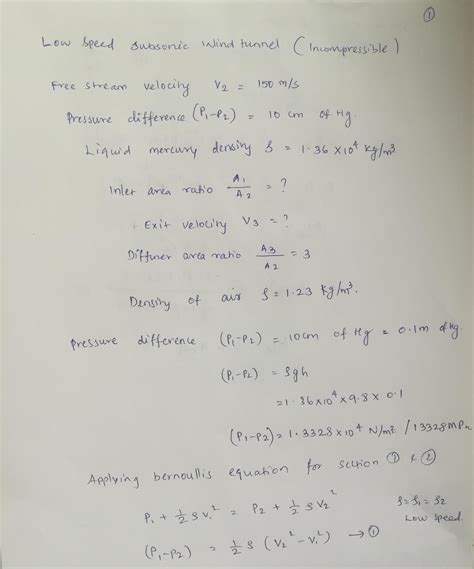 ①
Low Speed subsonic wind tunnel (Incompressible)
Free stream velocity V₂ = 150 m/s
Pressure difference (P₁-P₂) = 10 cm of Hg.
Liquid mercury density ρ = 1.36 x10⁴ kg/m³
Inlet area ratio A₁/A₂ = ?
Exit velocity V₃ = ?
Diffuser area ratio A₃/A₂ = 3
Density of air ρ = 1.23 kg/m³.
Pressure difference (P₁-P₂) = 10cm of Hg = 0.1m of Hg
(P₁-P₂) = ρgh
= 1.36 x10⁴ x 9.8 x 0.1
(P₁-P₂) = 1.3328 x10⁴ N/m². / 13328 MPa
Applying bernoullis equation for section ① & ②
P₁ + ½ ρ V₁² = P₂ + ½ ρ V₂²
ρ = ρ₁ = ρ₂
Low speed.
(P₁-P₂) = ½ ρ (V₂² - V₁²) → ①